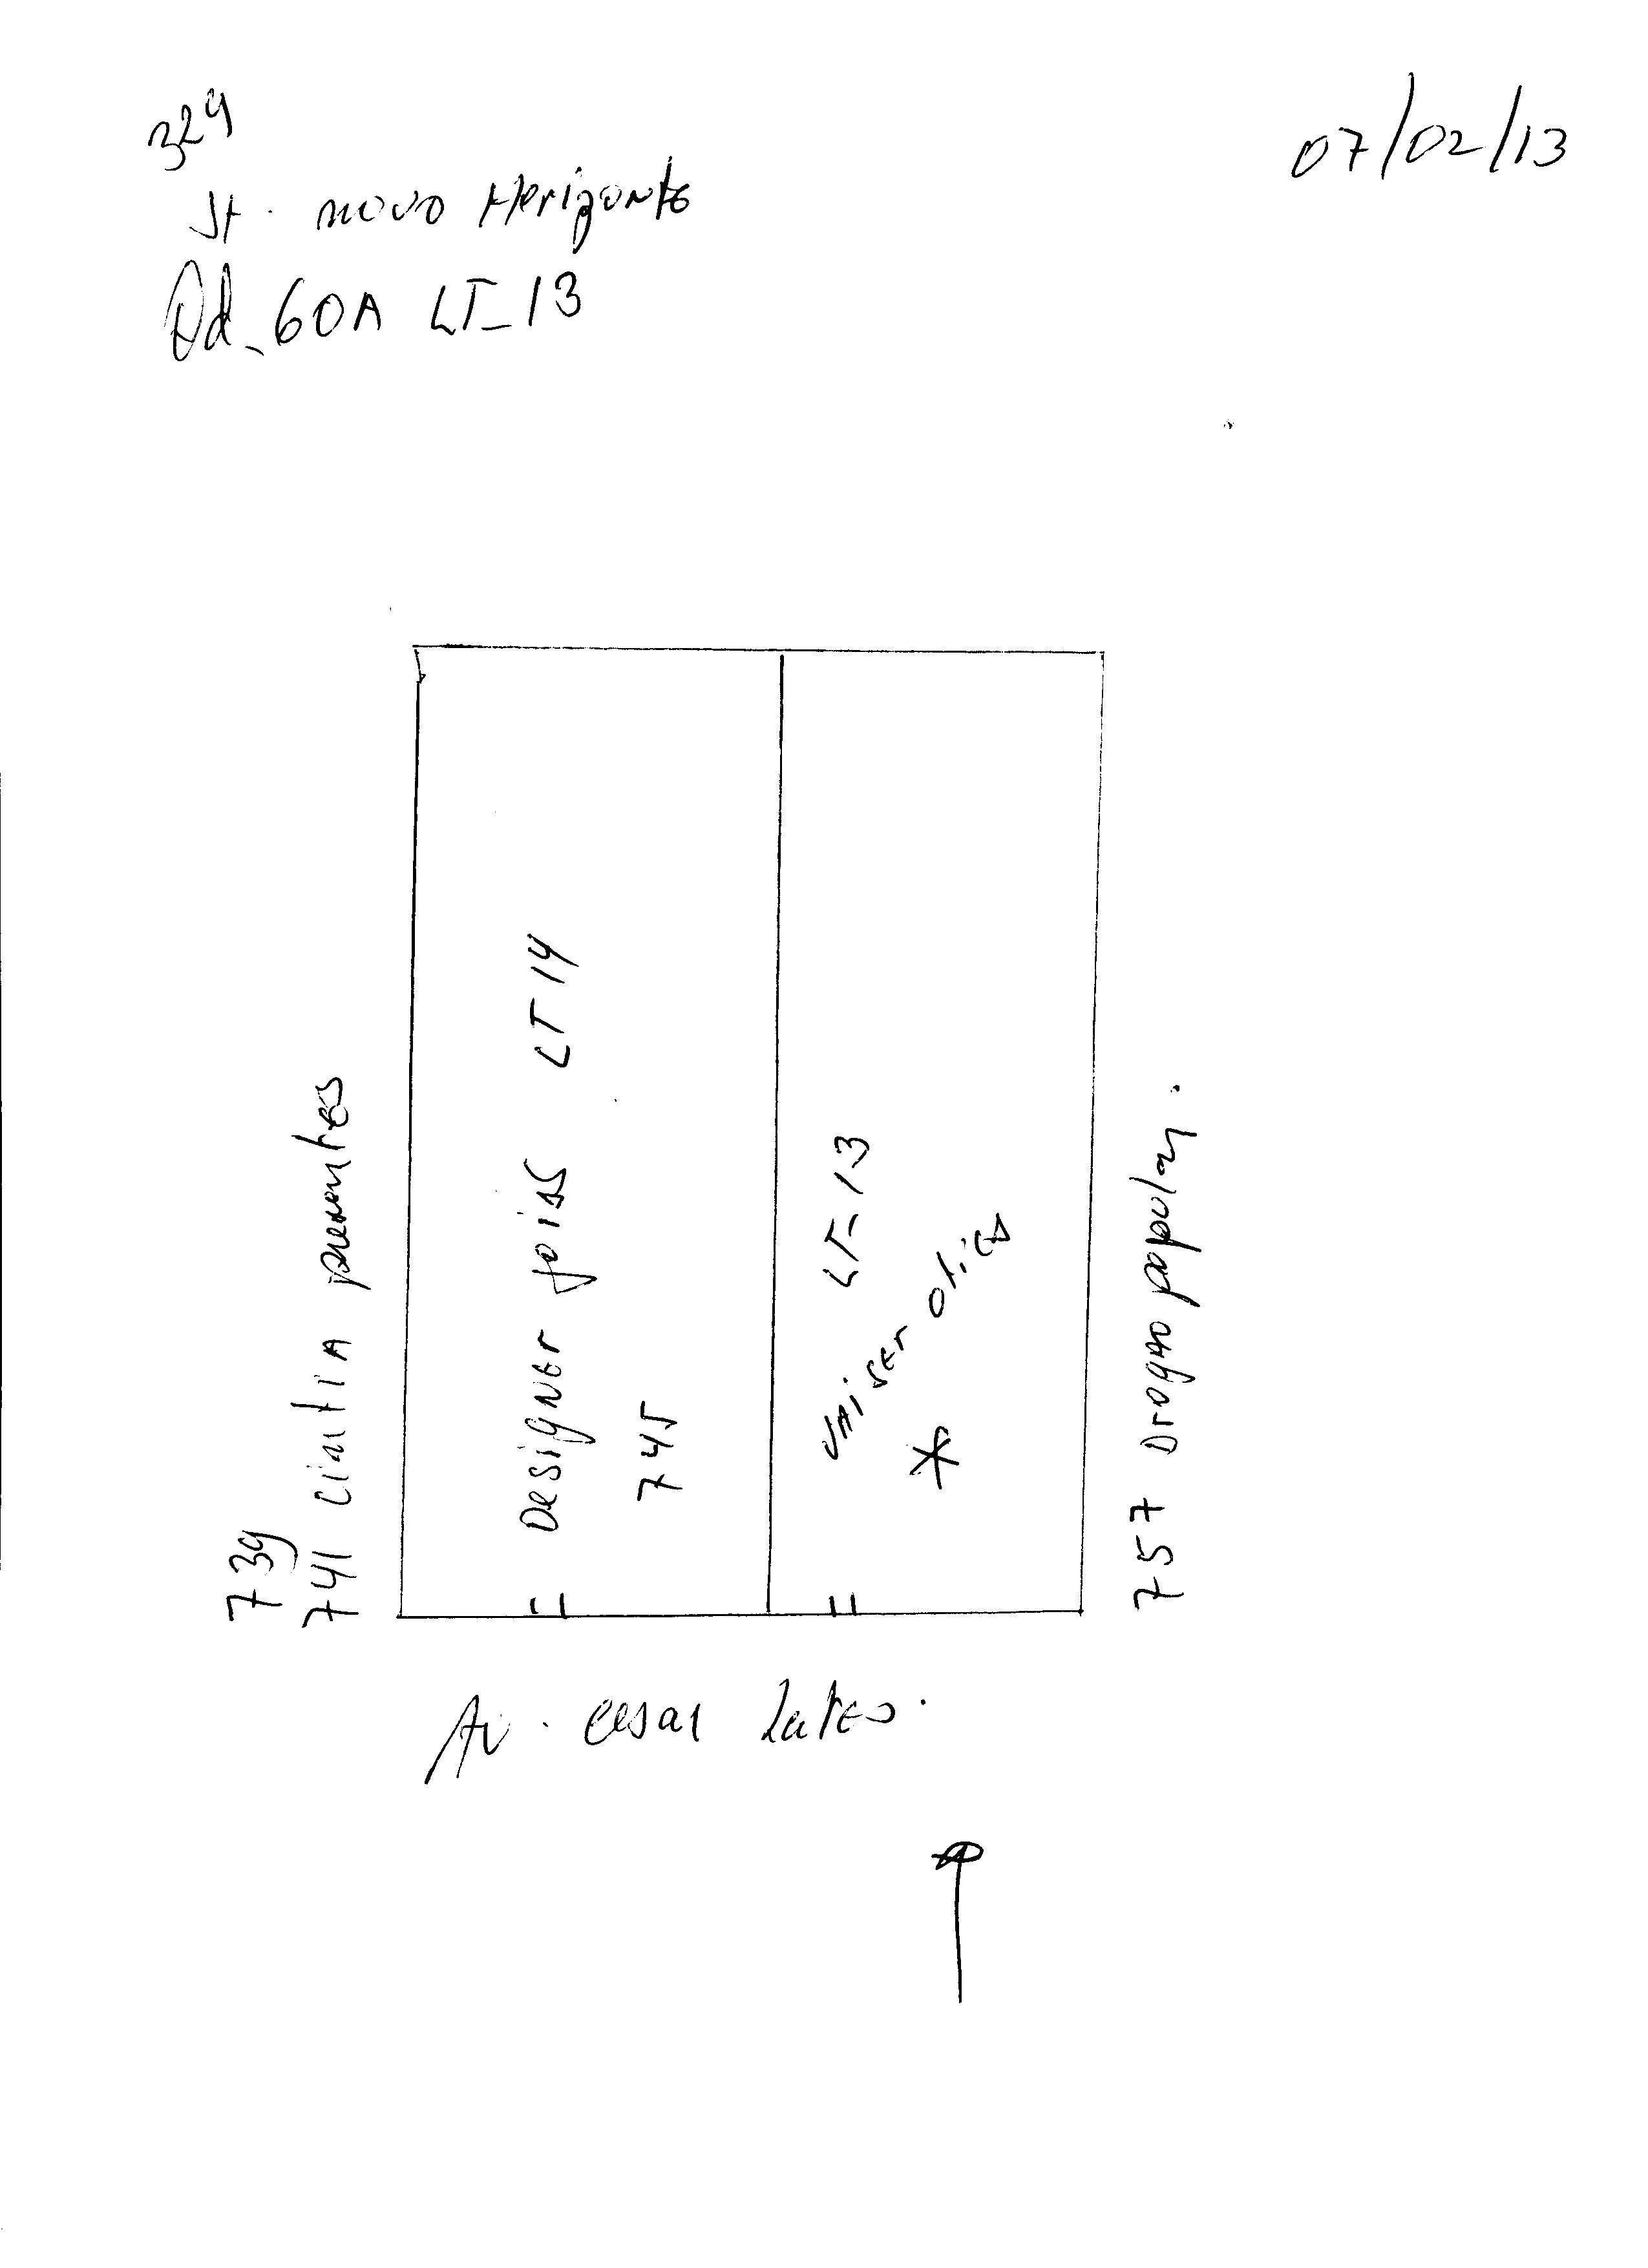 329
07/02/13
St. novo Horizonte
Qd-60A LT-13
739
741 cintia presentes
Designer joias LT 14
745
LT-13
vai ser otica
757 Drogao popular.
Av. cesar lates.